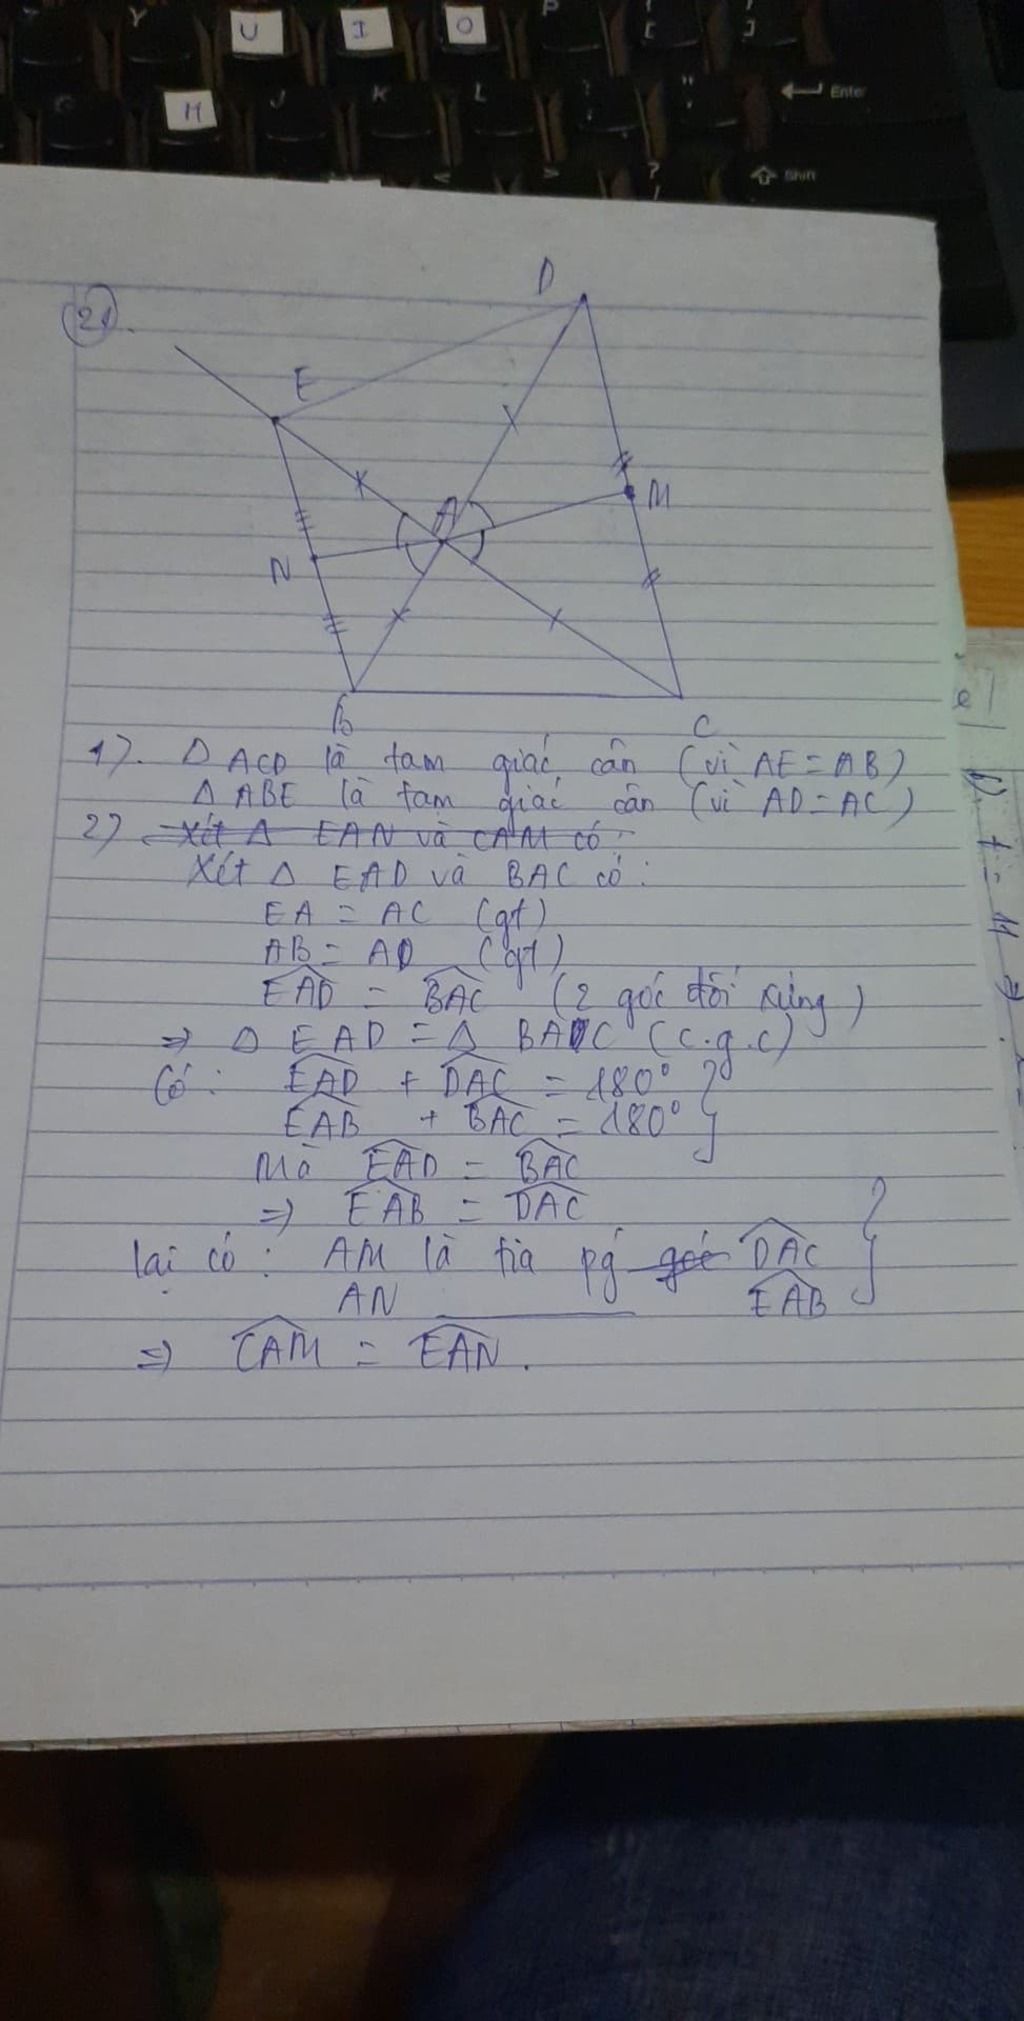 Y U I O P
H J K L
Enter
Shift
21.
D
E
A
M
N
B
C
1). Δ ACD là tam giác cân (vì AE = AB)
Δ ABE là tam giác cân (vì AD = AC)
2) Xét Δ EAN và CAM có:
Xét Δ EAD và BAC có:
EA = AC (gt)
AB = AD (gt)
EAD = BAC (2 góc đối xứng)
=> Δ EAD = Δ BAC (c.g.c)
Có: EAD + DAC = 180°
EAB + BAC = 180°
Mà EAD = BAC
=> EAB = DAC
lại có: AM là tia pg góc DAC
AN EAB
=> CAM = EAN.